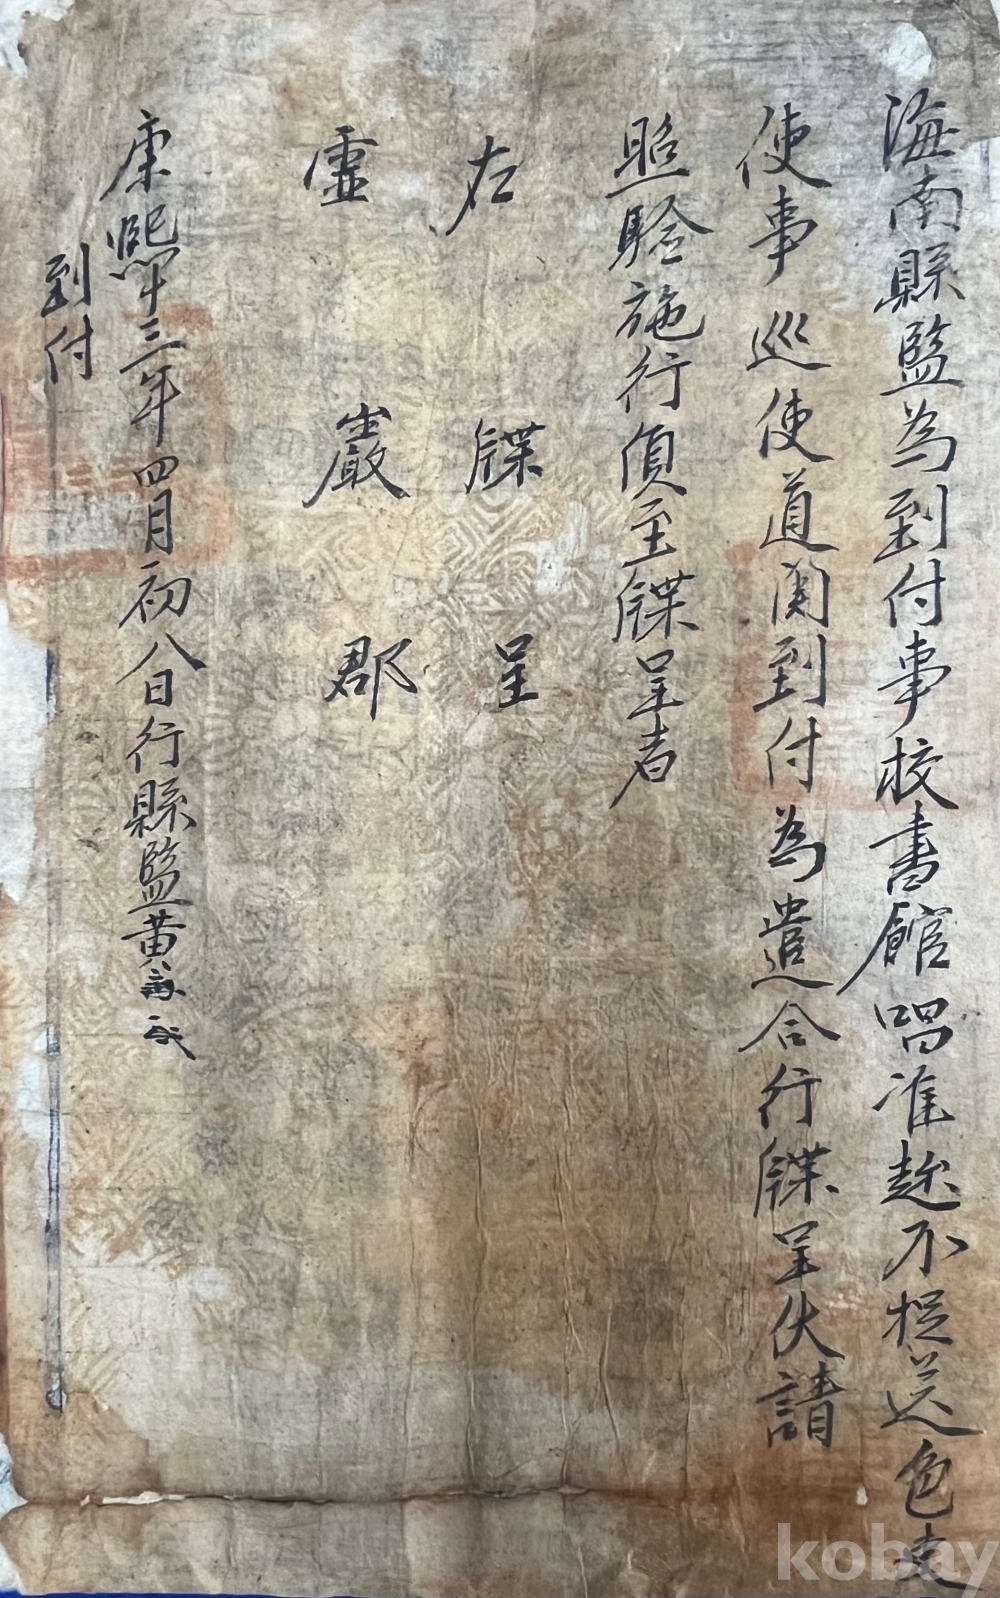 海南縣監為到付事校書館唱准趂不捉送色吏
使事 巡使道関到付為遣合行牒呈伏請
照驗施行須至牒呈者
左 牒 呈
靈 巖 郡
康熙十三年四月初八日行縣監黃
到付
kobay